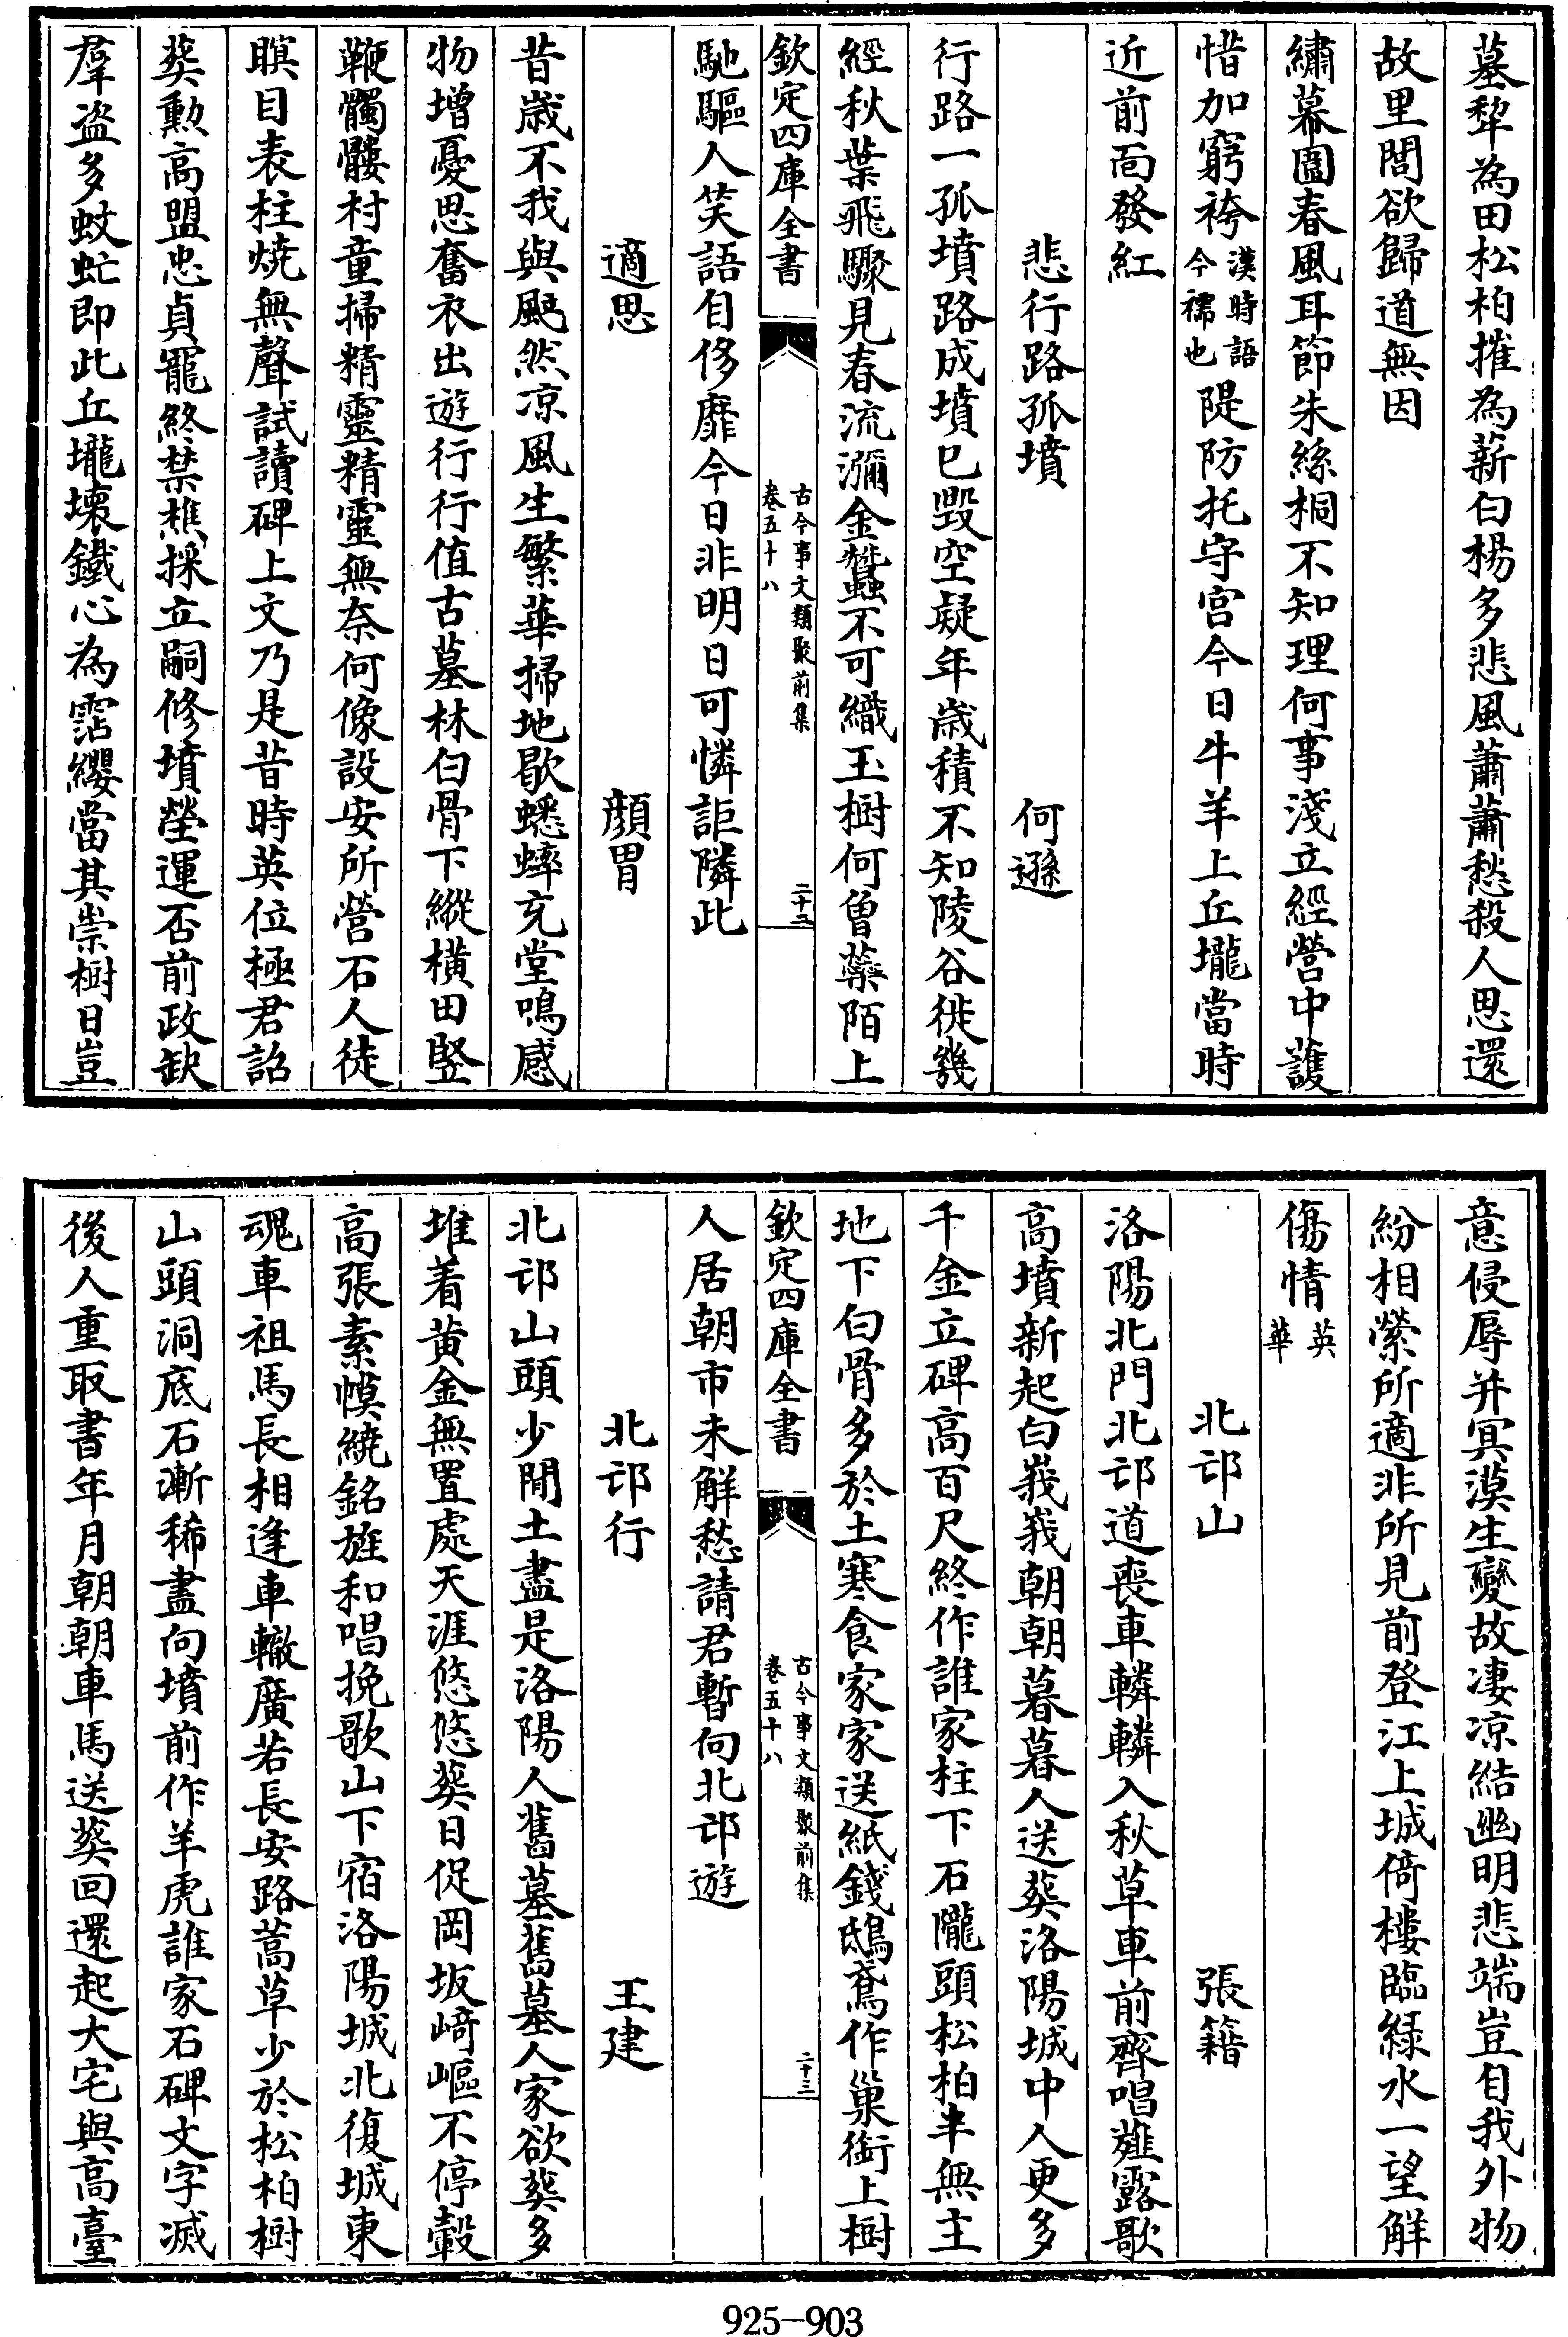 墓犂為田松柏摧為薪白楊多悲風蕭蕭愁殺人思還
故里閭欲歸道無因
繡幕圍春風耳節朱絲桐不知理何事淺立經營中護
惜加窮袴漢時語今𥜗也隄防托守宫今日牛羊上丘壠當時
近前面發紅
悲行路孤墳 何遜
行路一孤墳路成墳已毁空疑年歲積不知陵谷徙幾
經秋葉飛驟見春流瀰金蠶不可織玉樹何曽蘂陌上
欽定四庫全書 古今事文類聚前集 卷五十八 二十三
馳驅人笑語自侈靡今日非明日可憐詎隣此
適思 顔胄
昔歲不我與颯然凉風生繁華掃地歇蟋蟀充堂鳴感
物增憂思奮衣出遊行行值古墓林白骨下縱横田竪
鞭髑髏村童掃精靈精靈無奈何像設安所營石人徒
瞑目表柱燒無聲試讀碑上文乃是昔時英位極君詔
葬勲高盟忠貞寵終禁樵採立嗣修墳塋運否前政缺
羣盗多蚊虻即此丘壠壊鐵心為霑纓當其崇樹日豈
意侵辱并冥漠生變故凄凉結幽明悲端豈自我外物
紛相縈所適非所見前登江上城倚樓臨緑水一望解
傷情英華
北邙山 張籍
洛陽北門北邙道喪車轔轔入秋草車前齊唱薤露歌
高墳新起白峩峩朝朝暮暮人送葬洛陽城中人更多
千金立碑高百尺終作誰家柱下石隴頭松柏半無主
地下白骨多於土寒食家家送紙錢鴟鳶作巢銜上樹
欽定四庫全書 古今事文類聚前集 卷五十八 二十三
人居朝市未解愁請君暫向北邙遊
北邙行 王建
北邙山頭少閒土盡是洛陽人舊墓舊墓人家欲葬多
堆着黄金無置處天涯悠悠葬日促岡坂﨑嶇不停轂
高張素幙繞銘旌和唱挽歌山下宿洛陽城北復城東
魂車祖馬長相逢車轍廣若長安路蒿草少於松柏樹
山頭洞底石漸稀盡向墳前作羊虎誰家石碑文字滅
後人重取書年月朝朝車馬送葬回還起大宅與高臺
925-903